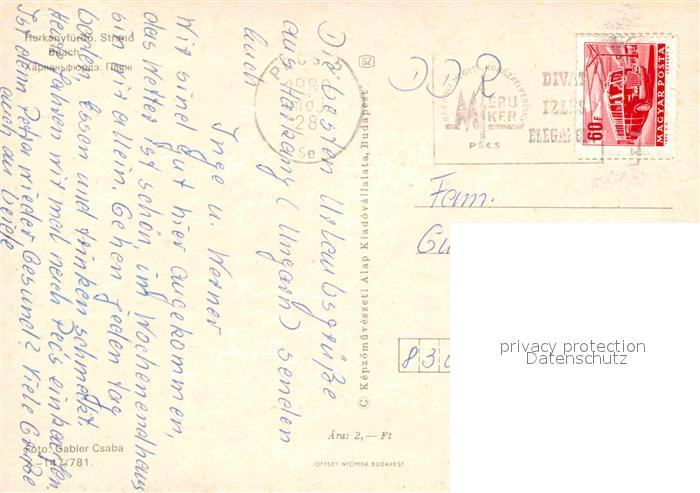 Harkányfürdő. Strand
Beach
Харканьфюрдо. Пляж
Die besten Urlaubsgrüße
aus Harkany (Ungarn) senden
Euch
Inge u. Werner
Wir sind gut hier angekommen,
das Wetter ist schön, im Wochenendhaus
sind wir allein. Gehen jeden Tag
baden, Essen und trinken schmeckt.
Heute fahren wir mal nach Pecs einkaufen.
Ist denn Petra wieder Gesund? Viele Grüße
auch an Beide
Foto: Gabler Csaba
147/781.
© Képzőművészeti Alap Kiadóvállalata, Budapest
SZ
Ára: 2,— Ft
OFFSET-NYOMDA BUDAPEST
DDR
PÉCS
28
MERU
KER
PÉCS
DIVAT
ÍZLÉS
60 f
MAGYAR POSTA
Fam.
83
privacy protection
Datenschutz